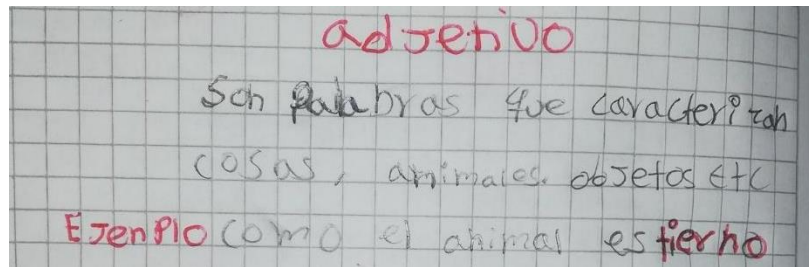 adjetivo
Son palabras que caracterizan
cosas, animales. objetos etc
Ejenplo como el animal es tierno